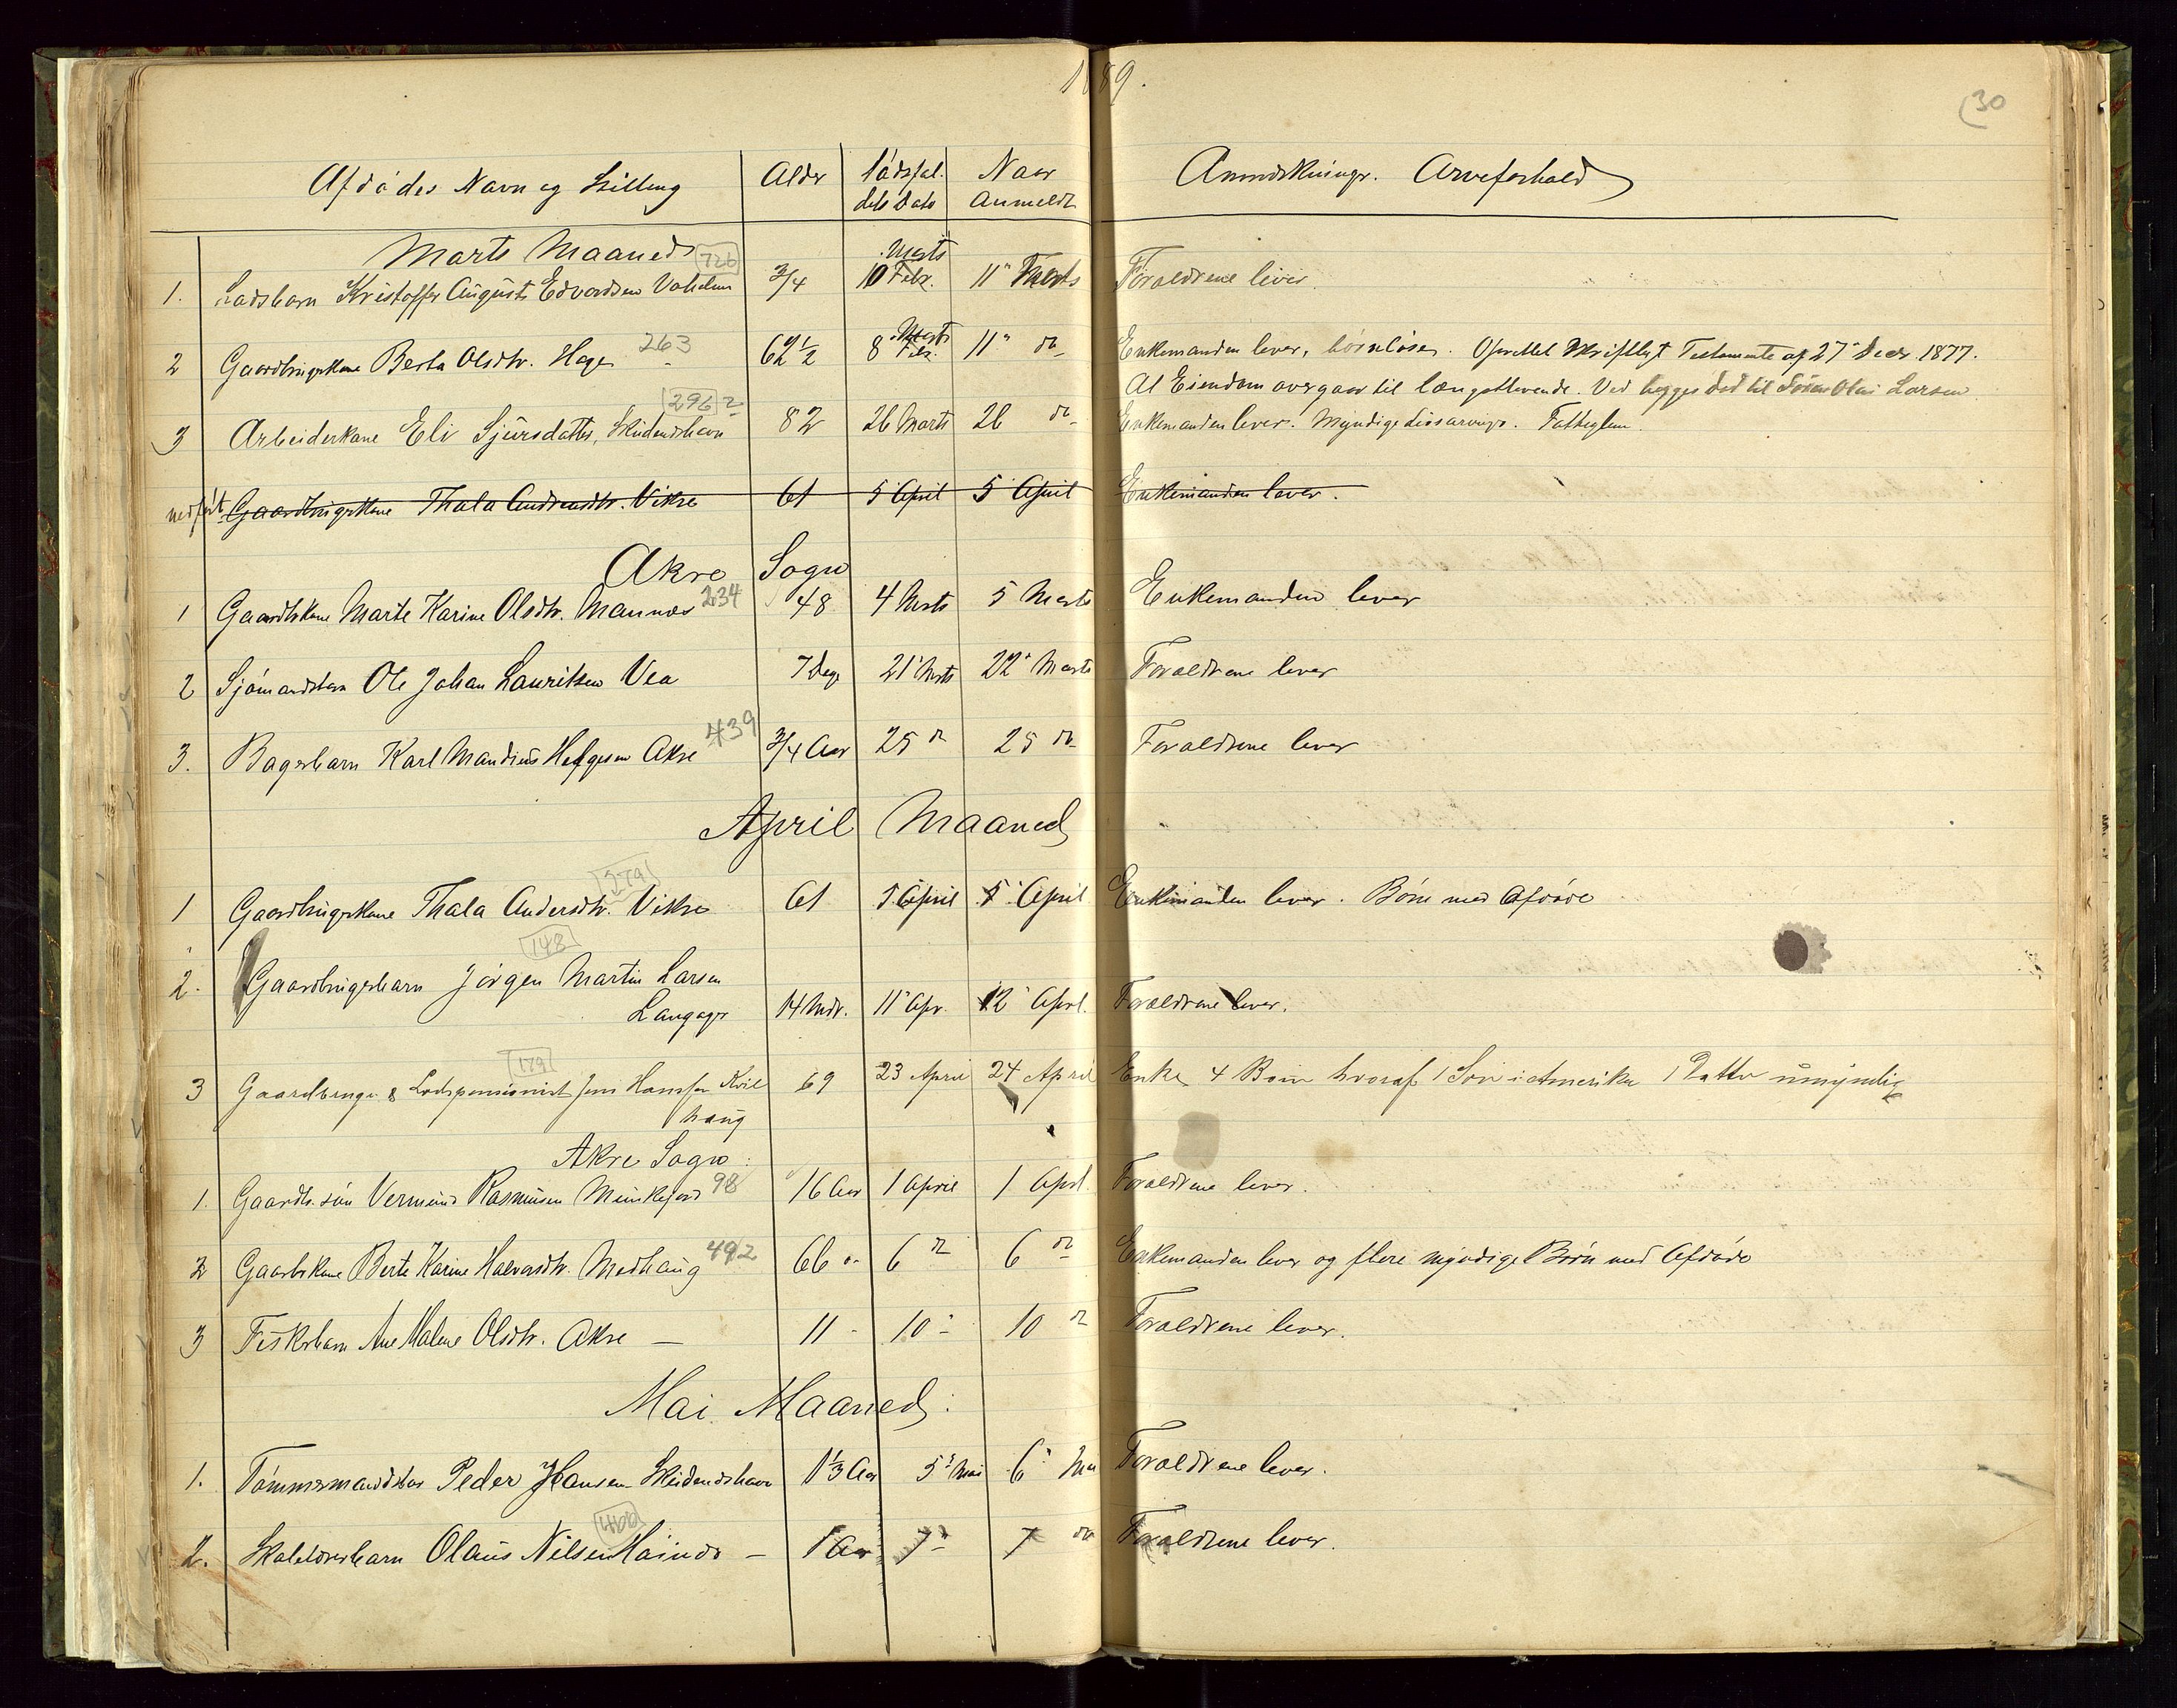 1889.
30
Afdødes Navn og Stilling Alder Dødsfal- Naar Anmerkninger. Arveforhold
dets Dato Anmeldt
Marts Maaned 726
Marts
1. Ladsbarn Kristoffer August Edvardsen 3/4 10 Febr. 11" Marts Forældrene lever.
263 Marts
2 Gaardbrugerkone Berta Olsdtr. Hage 62 1/2 8 Febr. 11" do Enkemanden lever, børnløse. Oprettet skriftligt Testamente af 27" Decbr. 1877.
At Eiendom overgaar til længstlevende. Ved begges død til Olai Larsen
296
3 Arbeiderkone Eli Sjursdatter, Skudeneshavn 82 26 Marts 26 do Enkemanden lever. Myndige Livsarvinger. Fattiglem.
nedført Gaardbrugerkone Thala Andersdtr. Vikre 61 5 April 5 April Enkemanden lever.
Akre Sogn
1 Gaardbrkone Marte Karine Olsdtr. Mannes 234 48 4 Marts 5 Marts Enkemanden lever
2 Sjømandsbarn Ole Johan Lauritsen Vea 7 Dage 21" Marts 22" Marts Forældrene lever
3. Bagerbarn Karl Mandius Helgesen Akre 439 3/4 Aar 25 do 25 do Forældrene lever
April Maaned
279
1 Gaardbrugerkone Thala Andersdtr. Vikre 61 5 April 5" April Enkemanden lever. Børn med Afdøde
148
2. Gaardbrugerbarn Jørgen Martin Larsen
Langager 14 Mdr. 11" Apr. 12" April. Forældrene lever.
179
3 Gaardbruger & Lodspensionist Jens Hansen Kvil 69 23 April 24 April Enke, 4 Børn hvoraf 1 Søn i Amerika 1 Datter umyndig
haug
Akre Sogn:
1. Gaardb. søn Vermund Rasmusen Munkejord 98 16 Aar 1 April 1 April Forældrene lever.
2 Gaardbrkone Berte Karine Halvorsdtr. Medhaug 492 66 " 6 do 6 do Enkemanden lever og flere myndige Børn med Afdøde
3 Fiskerbarn Ane Malene Olsdtr. Akre — 11 " 10 " 10 do Forældrene lever.
Mai Maaned:
1. Tømmermandsbar Peder Hansen Skudeneshavn 1 1/3 Aar 5" Mai 6" Mai Forældrene lever.
400
2. Olaus Nilsen — 1 Aar 7" 7 do Forældrene lever.